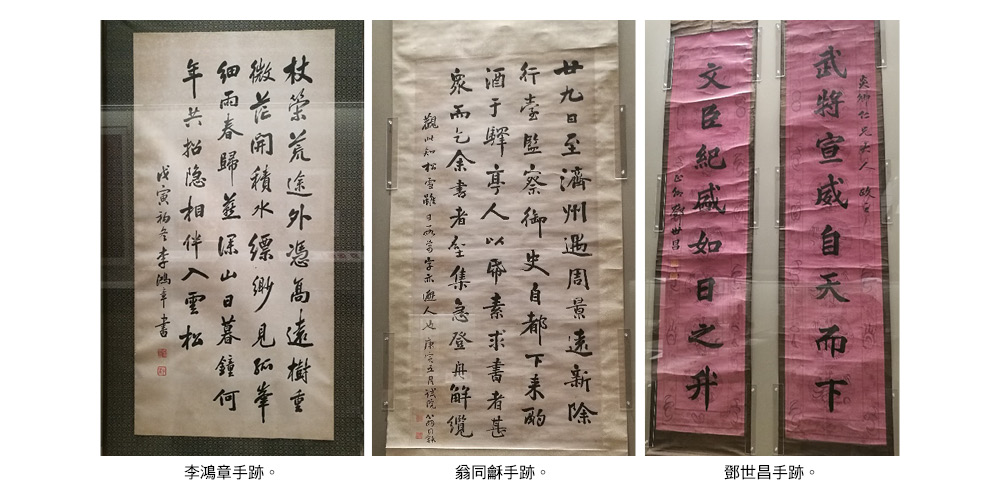 杖策荒途外憑高遠樹重
微茫開積水縹緲見孤峯
細雨春歸燕深山日暮鐘何
年共招隱相伴入雲松
戊寅初冬李鴻章書
李鴻章手跡。
廿九日至濟州遇周景遠新除
行臺監察御史自都下來酌
酒于驛亭人以帋素求書者甚
眾而乞余書者坌集急登舟解纜
觀此知松雪雖日一萬字亦避人也 庚寅五月試院 翁同龢
翁同龢手跡。
仁兄大人
武將宣威自天而下
文臣紀盛如日之升
鄧世昌
鄧世昌手跡。